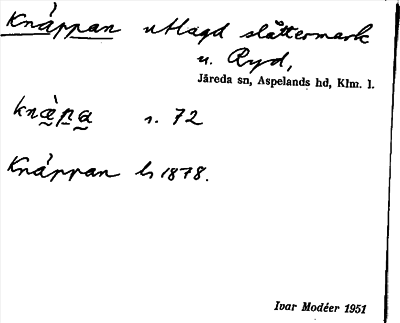 Knàppan utlagd slåttermark
u. Ryd,
Järeda sn, Aspelands hd, Klm. l.
s. 72
Knàppan hs 1878.
Ivar Modéer 1951